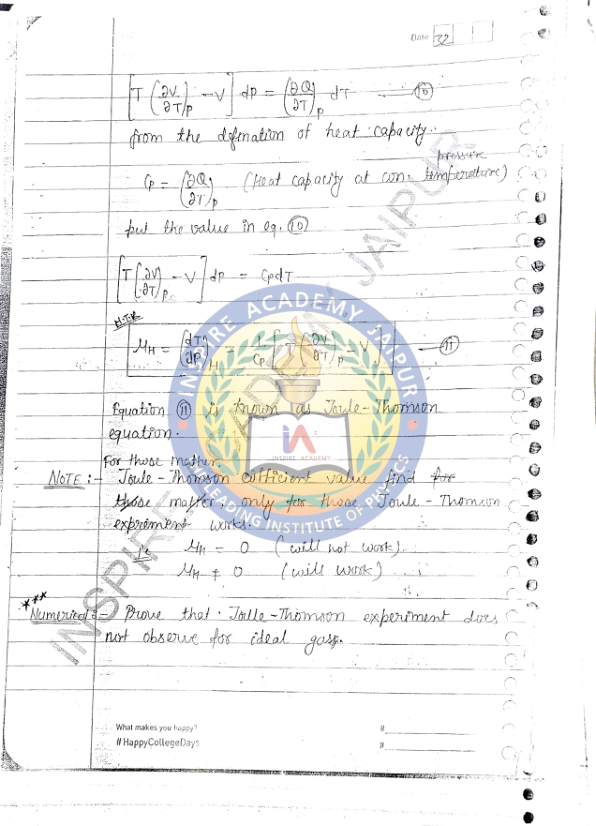 Date 32
[T (∂V/∂T)_P − V] dP = (∂Q/∂T)_P dT —— ⑩
from the defination of heat capacity.
pressure
Cp = (∂Q/∂T)_P (Heat capacity at con. temperature)
put the value in eq. ⑩
[T (∂V/∂T)_P − V] dP = CpdT
μH = (dT/dP)_H = 1/Cp [T (∂V/∂T)_P − V] —— ⑪
Equation ⑪ is known as Joule-Thomson
equation.
For those matter.
NOTE :- Joule-Thomson cofficient value find for
those matter. only for those Joule-Thomson
expreiment works.
μH = 0 (will not work).
μH ≠ 0 (will work)
*** Numerical :- Prove that Joule-Thomson experiment does
not observe for ideal gas.
INSPIRE ACADEMY JAIPUR
iA
INSPIRE ACADEMY
THE LEADING INSTITUTE OF PHYSICS
INSPIRE ACADEMY JAIPUR
What makes you happy? #
#HappyCollegeDays #